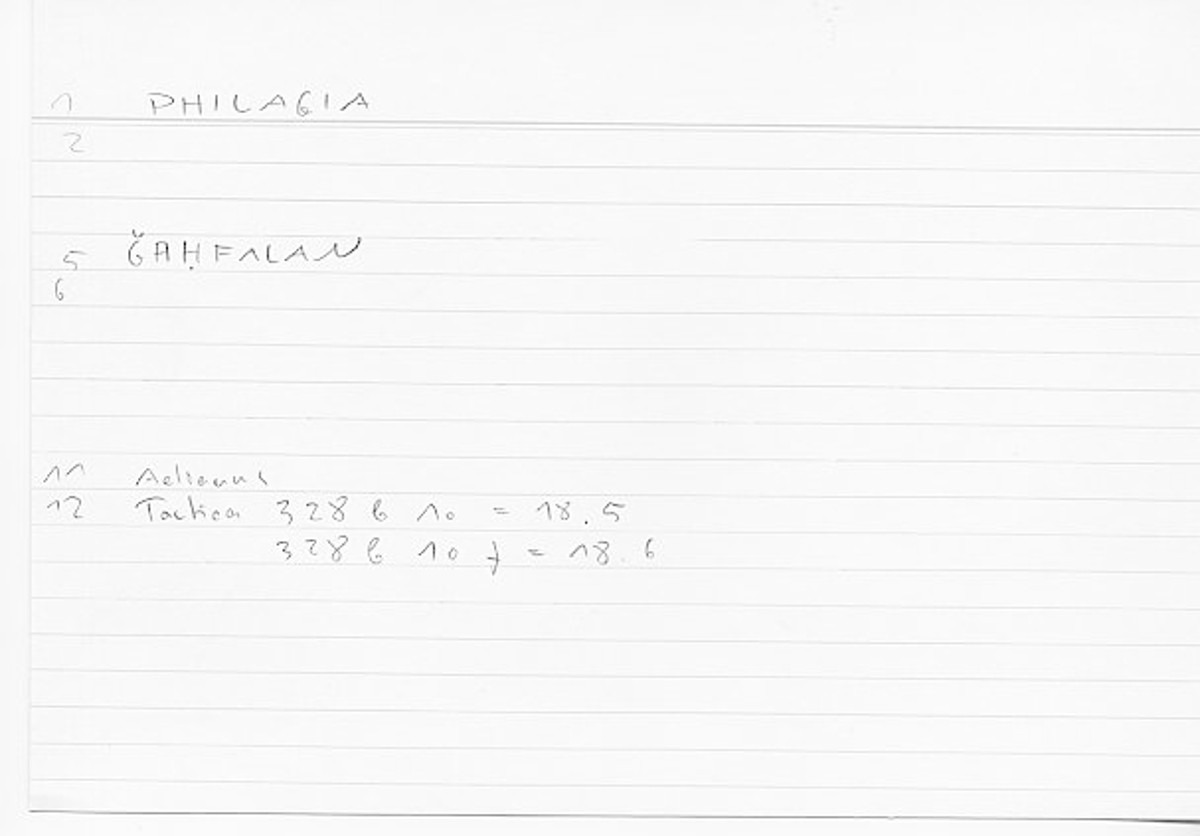 1 PHILAGIA
2
5 ǦAḤFALAN
6
11 Aelianus
12 Tactica 328 b 10 = 18.5
328 b 10 f = 18.6